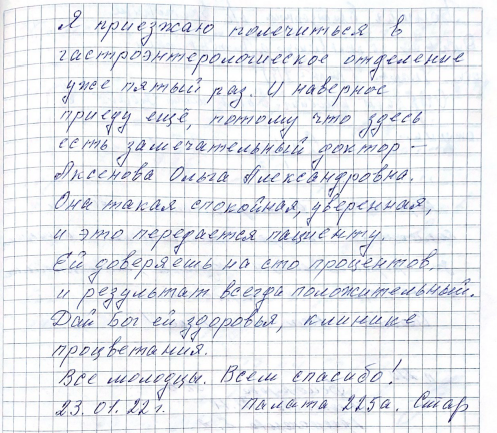 Я приезжаю полечиться в
гастроэнтерологическое отделение
уже пятый раз. И наверное
приеду ещё, потому что здесь
есть замечательный доктор –
Аксенова Ольга Александровна.
Она такая спокойная, уверенная,
и это передается пациенту.
Ей доверяешь на сто процентов,
и результат всегда положительный.
Дай Бог ей здоровья, клинике
процветания.
Все молодцы. Всем спасибо!
23.01.22 г. Палата 225а. Стар